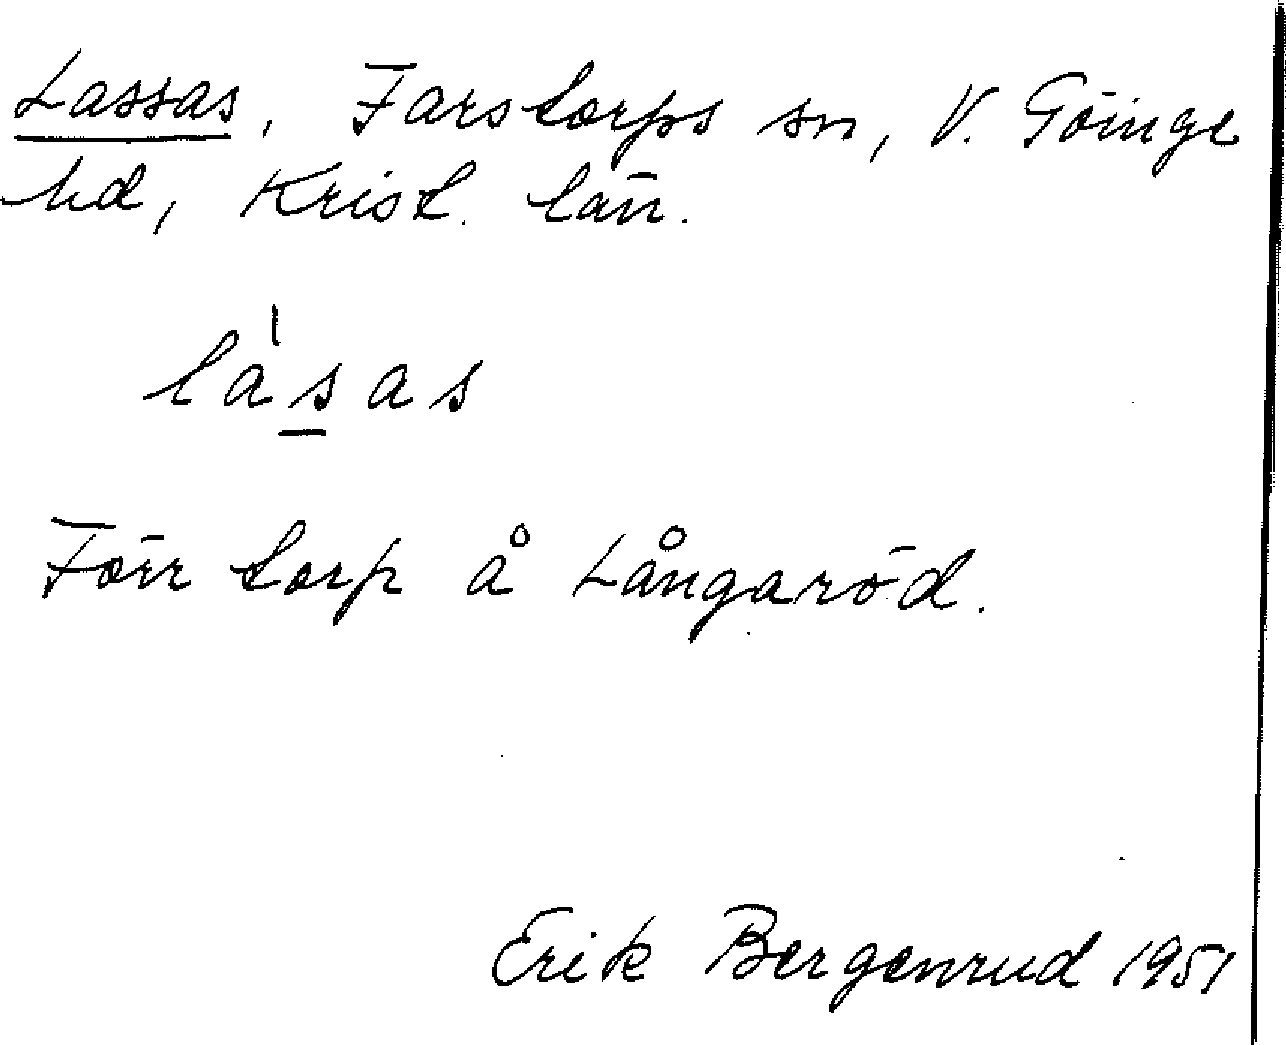 Lassas, Farstorps sn, V. Göinge
hd, Krist. län.
la'sas
Förr torp å Långaröd.
Erik Bergenrud 1951